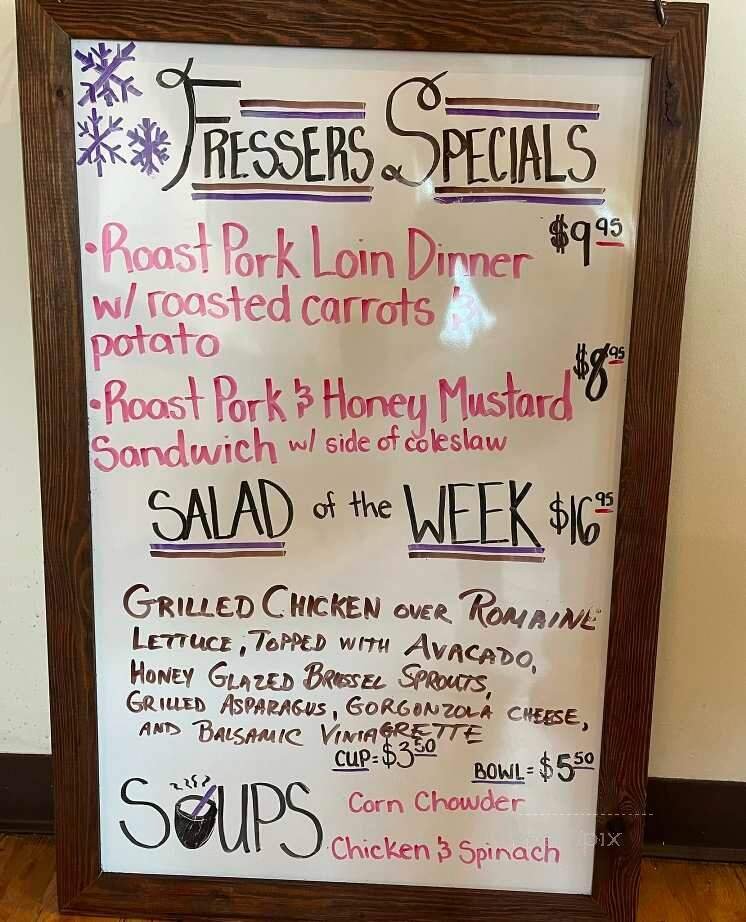 FRESSERS SPECIALS
•Roast Pork Loin Dinner $9.95
w/ roasted carrots &
potato
•Roast Pork & Honey Mustard $8.95
Sandwich w/ side of coleslaw
SALAD of the WEEK $16.95
GRILLED CHICKEN OVER ROMAINE
LETTUCE, TOPPED WITH AVACADO,
HONEY GLAZED BRUSSEL SPROUTS,
GRILLED ASPARAGUS, GORGONZOLA CHEESE,
AND BALSAMIC VINIAGRETTE
CUP=$3.50 BOWL=$5.50
SOUPS
Corn Chowder
Chicken & Spinach